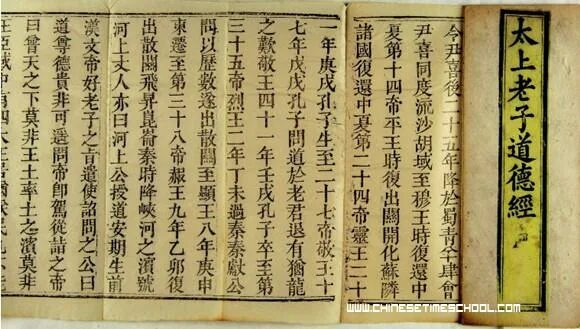 太上老子道德經
今尹喜後二十五年降於蜀青羊肆會
尹喜同度流沙胡域至穆王時復還中
夏第十四帝平王時復出關開化蘇隣
諸國復還中夏第二十四帝靈王二十
一年庚戌孔子生至二十七帝敬王十
七年戊戌孔子問道於老君退有猶龍
之歎敬王四十一年壬戌孔子卒至第
三十五帝烈王二年丁未過秦秦獻公
問以歷數遂出散關至顯王八年庚申
東遷至第三十八帝赧王九年乙卯復
出散關飛昇崑崙秦時降峽河之濱號
河上丈人亦曰河上公授道安期生前
漢文帝好老子之旨遣使詔問之公曰
道尊德貴非可遥問帝即駕從詰之帝
曰普天之下莫非王土率土之濱莫非
王臣域中有四大王
WWW.CHINESETIMESCHOOL.COM